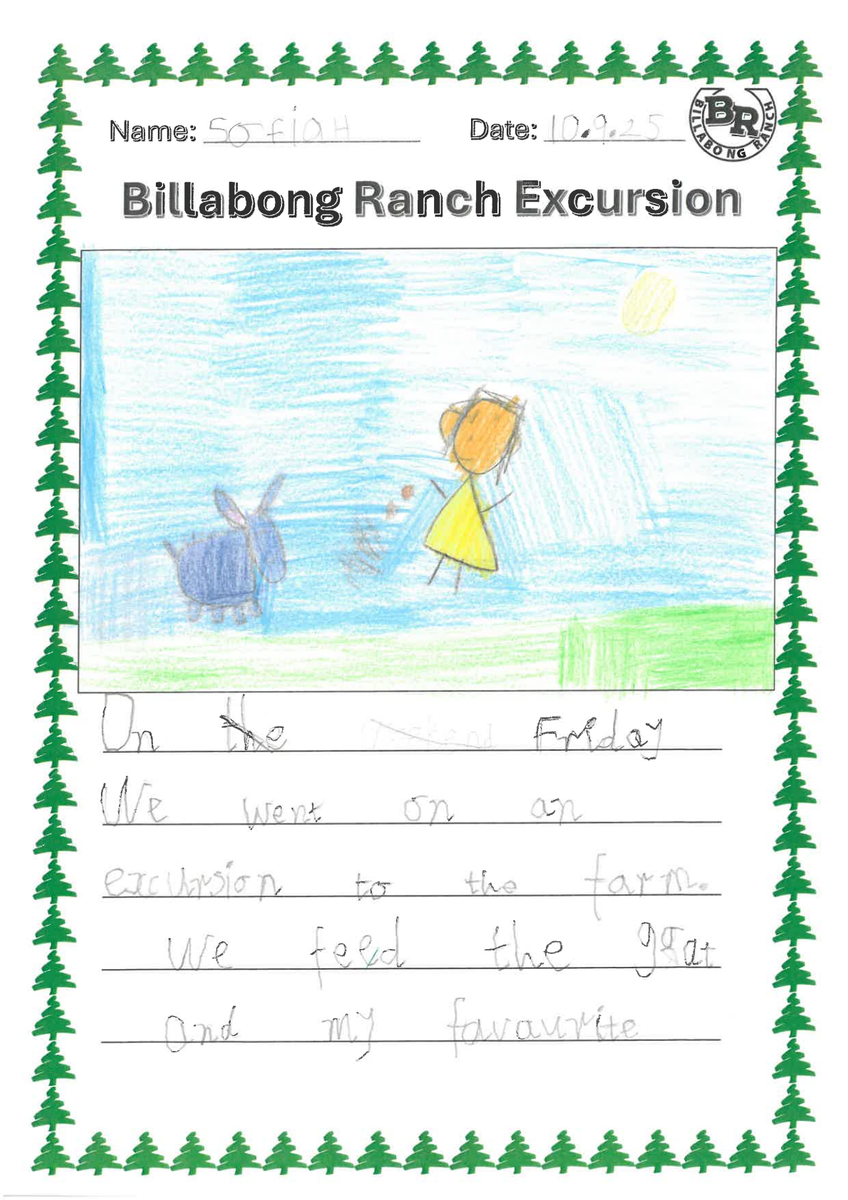 Name: Sofiah Date: 10.9.25
BR
BILLABONG RANCH
Billabong Ranch Excursion
On the Friday
We went on an
excursion to the farm.
we feed the
and my favaurite